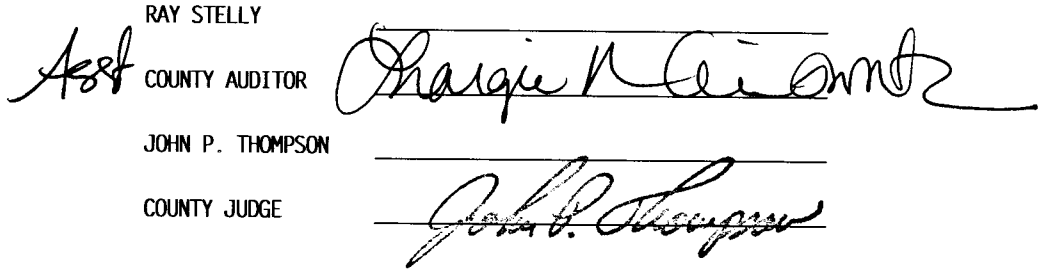 RAY STELLY
Asst COUNTY AUDITOR Margie
JOHN P. THOMPSON
COUNTY JUDGE John P. Thompson